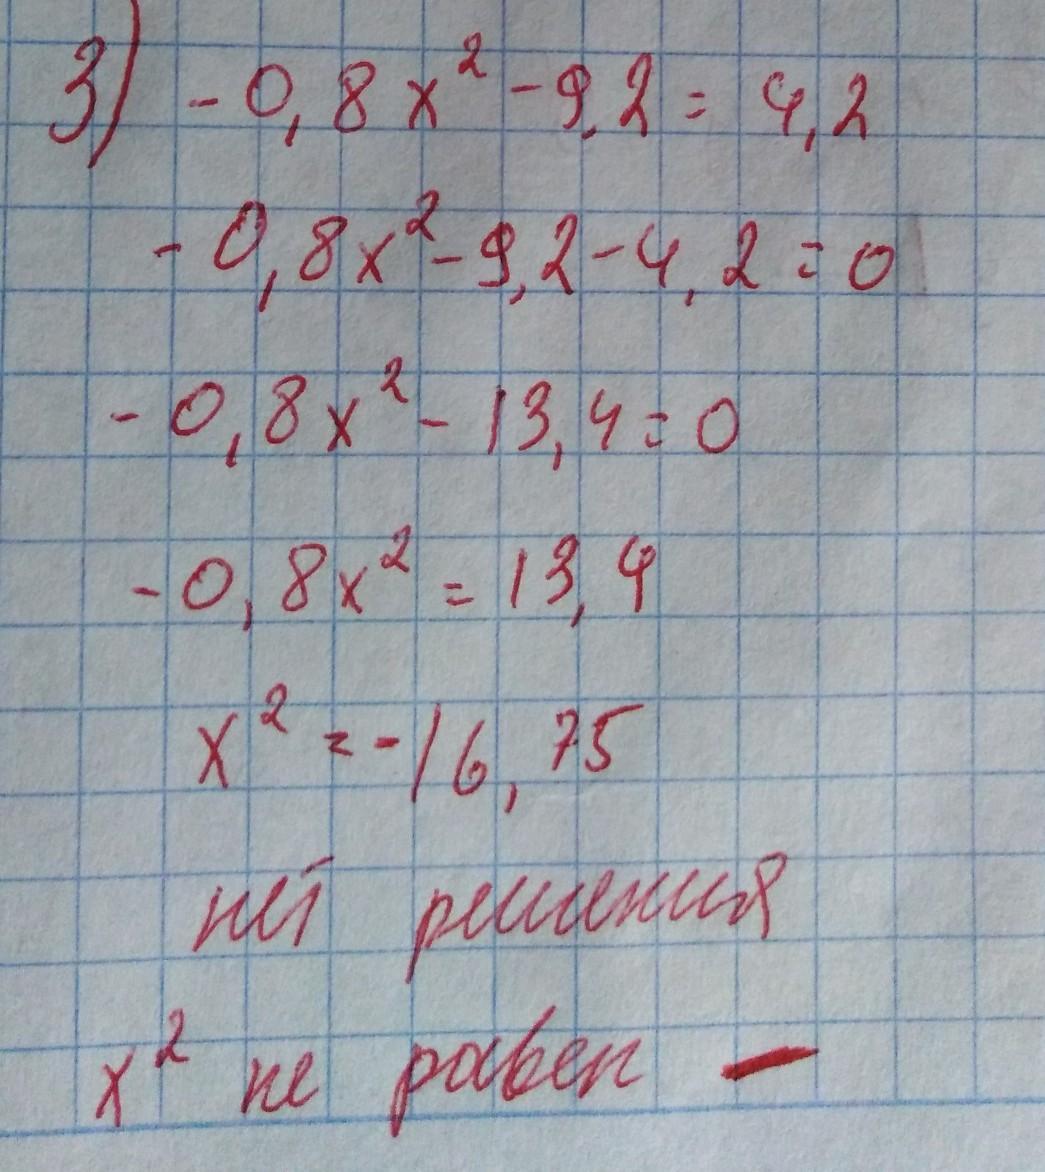 3) -0,8x² -9,2 = 4,2
-0,8x² -9,2 -4,2 = 0
-0,8x² - 13,4 = 0
-0,8x² = 13,4
x² = -16,75
нет решения
x² не равен -